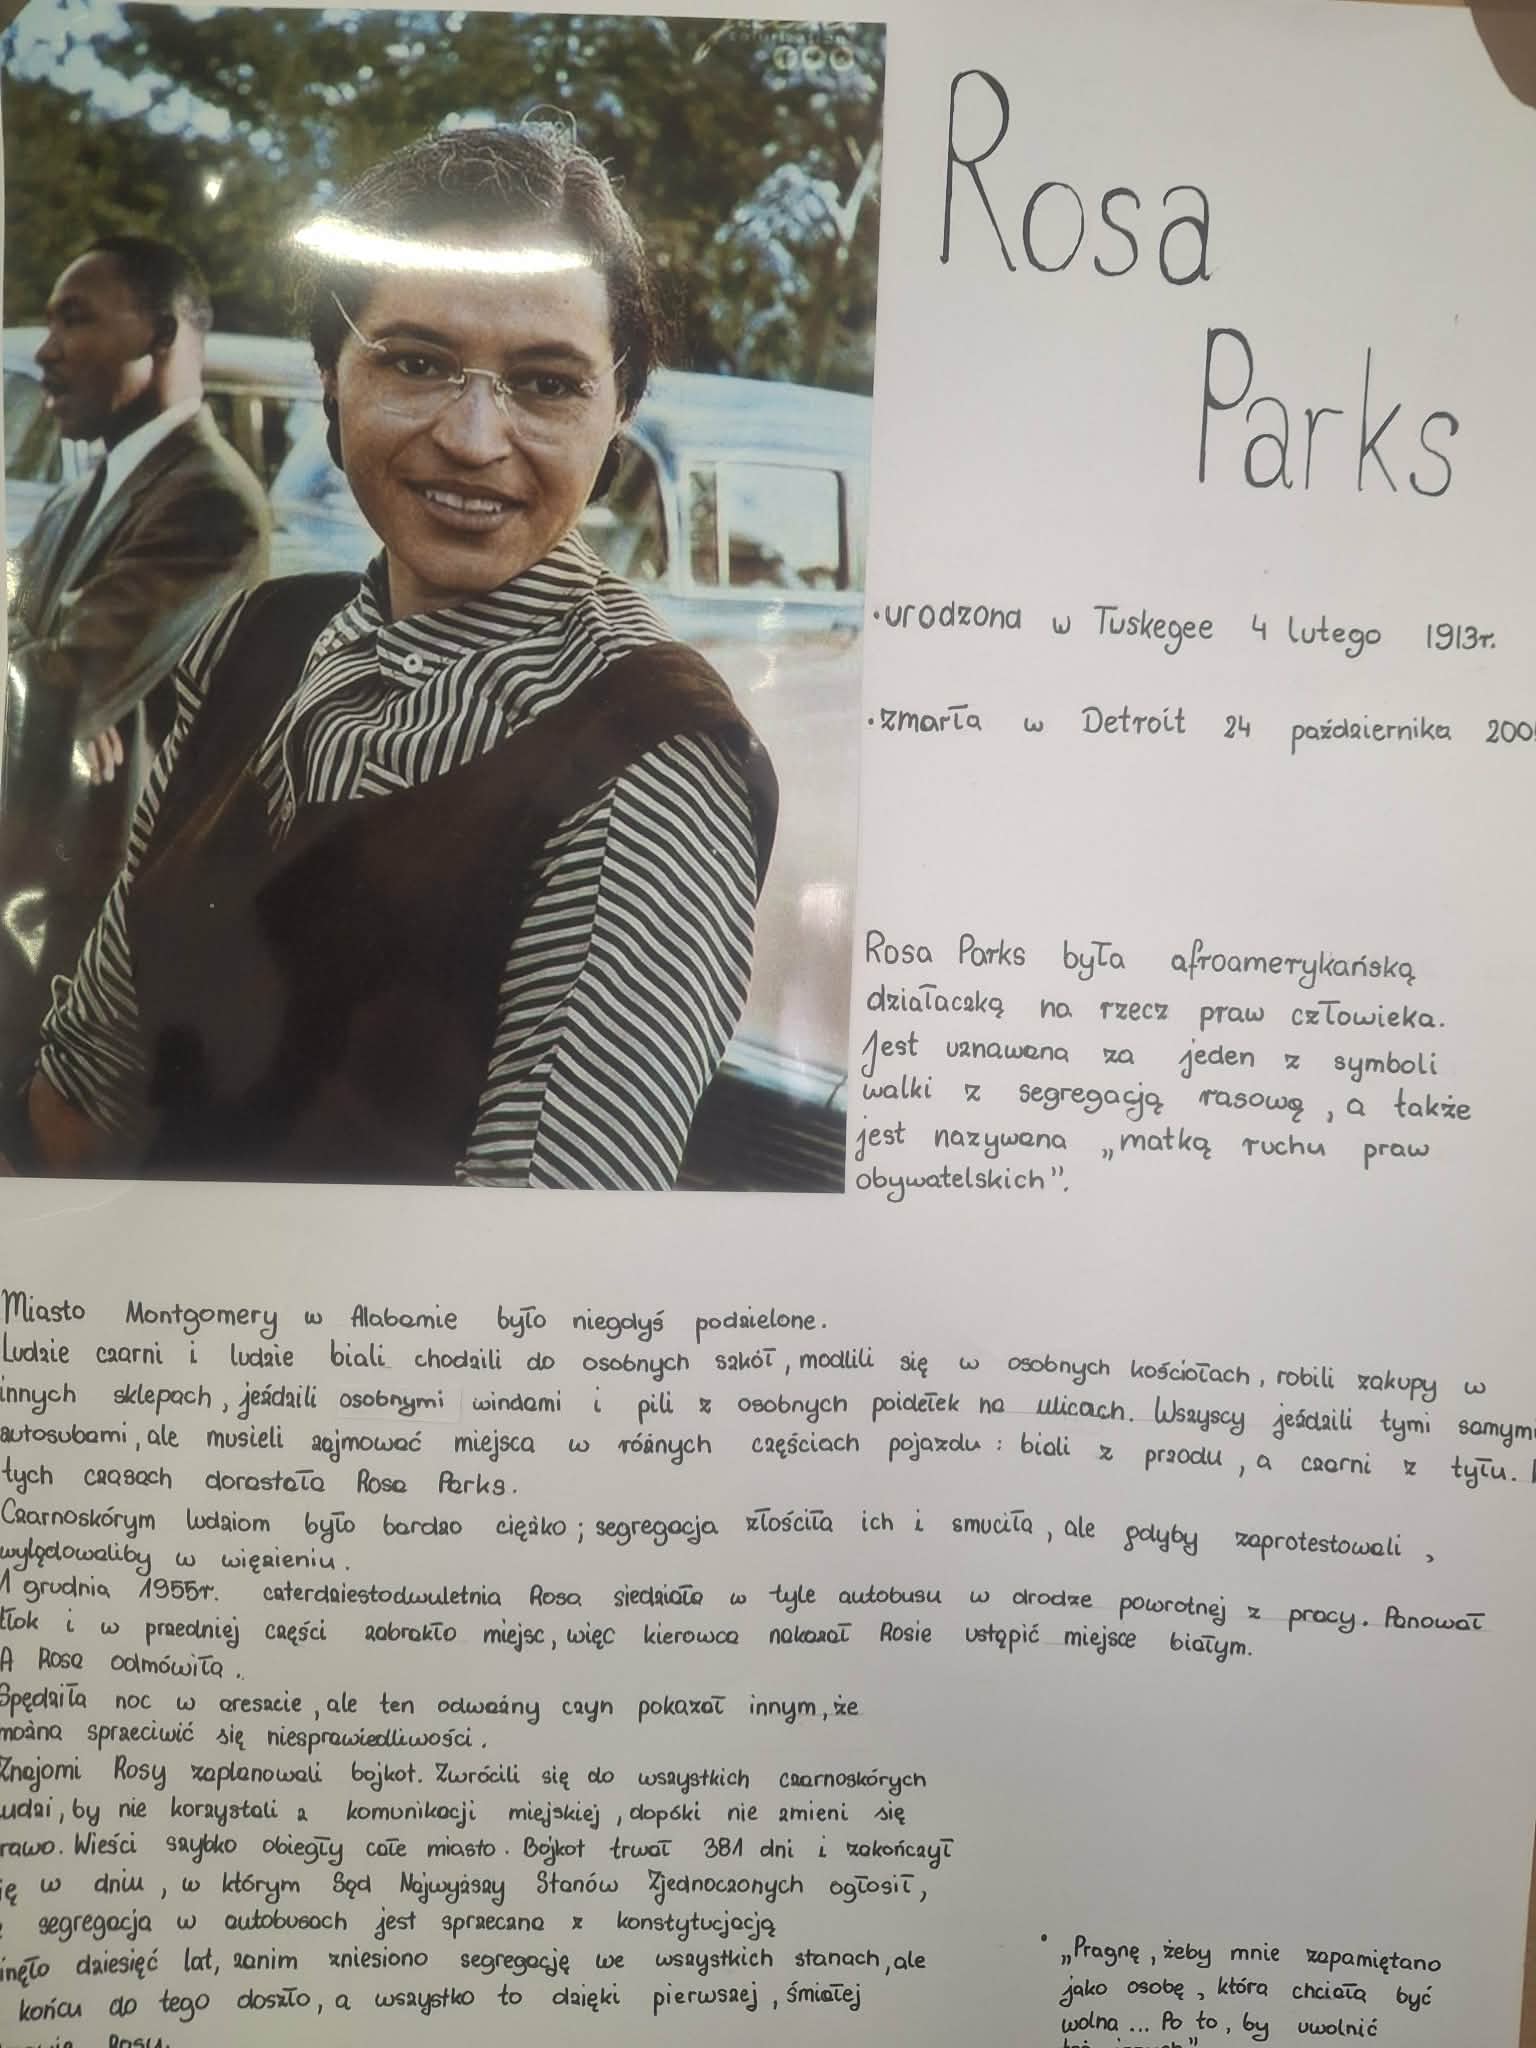 Rosa
Parks
•urodzona w Tuskegee 4 lutego 1913r.
•zmarła w Detroit 24 października 200
Rosa Parks była afroamerykańską
działaczką na rzecz praw człowieka.
Jest uznawana za jeden z symboli
walki z segregacją rasową, a także
jest nazywana „matką ruchu praw
obywatelskich”.
Miasto Montgomery w Alabamie było niegdyś podzielone.
Ludzie czarni i ludzie biali chodzili do osobnych szkół, modlili się w osobnych kościołach, robili zakupy w
innych sklepach, jeździli osobnymi windami i pili z osobnych poidełek na ulicach. Wszyscy jeździli tymi samym
autosubami, ale musieli zajmować miejsca w różnych częściach pojazdu: biali z przodu, a czarni z tyłu.
tych czasach dorastała Rosa Parks.
Czarnoskórym ludziom było bardzo ciężko; segregacja złościła ich i smuciła, ale gdyby zaprotestowali,
wylądowaliby w więzieniu.
1 grudnia 1955r. czterdziestodwuletnia Rosa siedziała w tyle autobusu w drodze powrotnej z pracy. Panował
tłok i w przedniej części zabrakło miejsc, więc kierowca nakazał Rosie ustąpić miejsce białym.
A Rosa odmówiła.
Spędziła noc w areszcie, ale ten odważny czyn pokazał innym, że
można sprzeciwić się niesprawiedliwości.
Znajomi Rosy zaplanowali bojkot. Zwrócili się do wszystkich czarnoskórych
udzi, by nie korzystali z komunikacji miejskiej, dopóki nie zmieni się
rawo. Wieści szybko obiegły całe miasto. Bojkot trwał 381 dni i zakończył
ię w dniu, w którym Sąd Najwyższy Stanów Zjednoczonych ogłosił,
segregacja w autobusach jest sprzeczna z konstytucjacją
inęło dziesięć lat, zanim zniesiono segregację we wszystkich stanach, ale
końcu do tego doszło, a wszystko to dzięki pierwszej, śmiałej
Rosy.
• „Pragnę, żeby mnie zapamiętano
jako osobę, która chciała być
wolna... Po to, by uwolnić